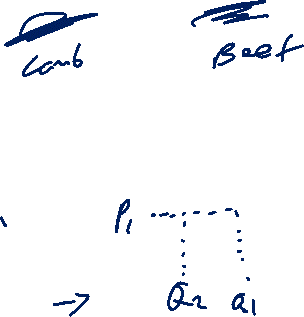 Lamb Beef
P1
→ Q2 Q1